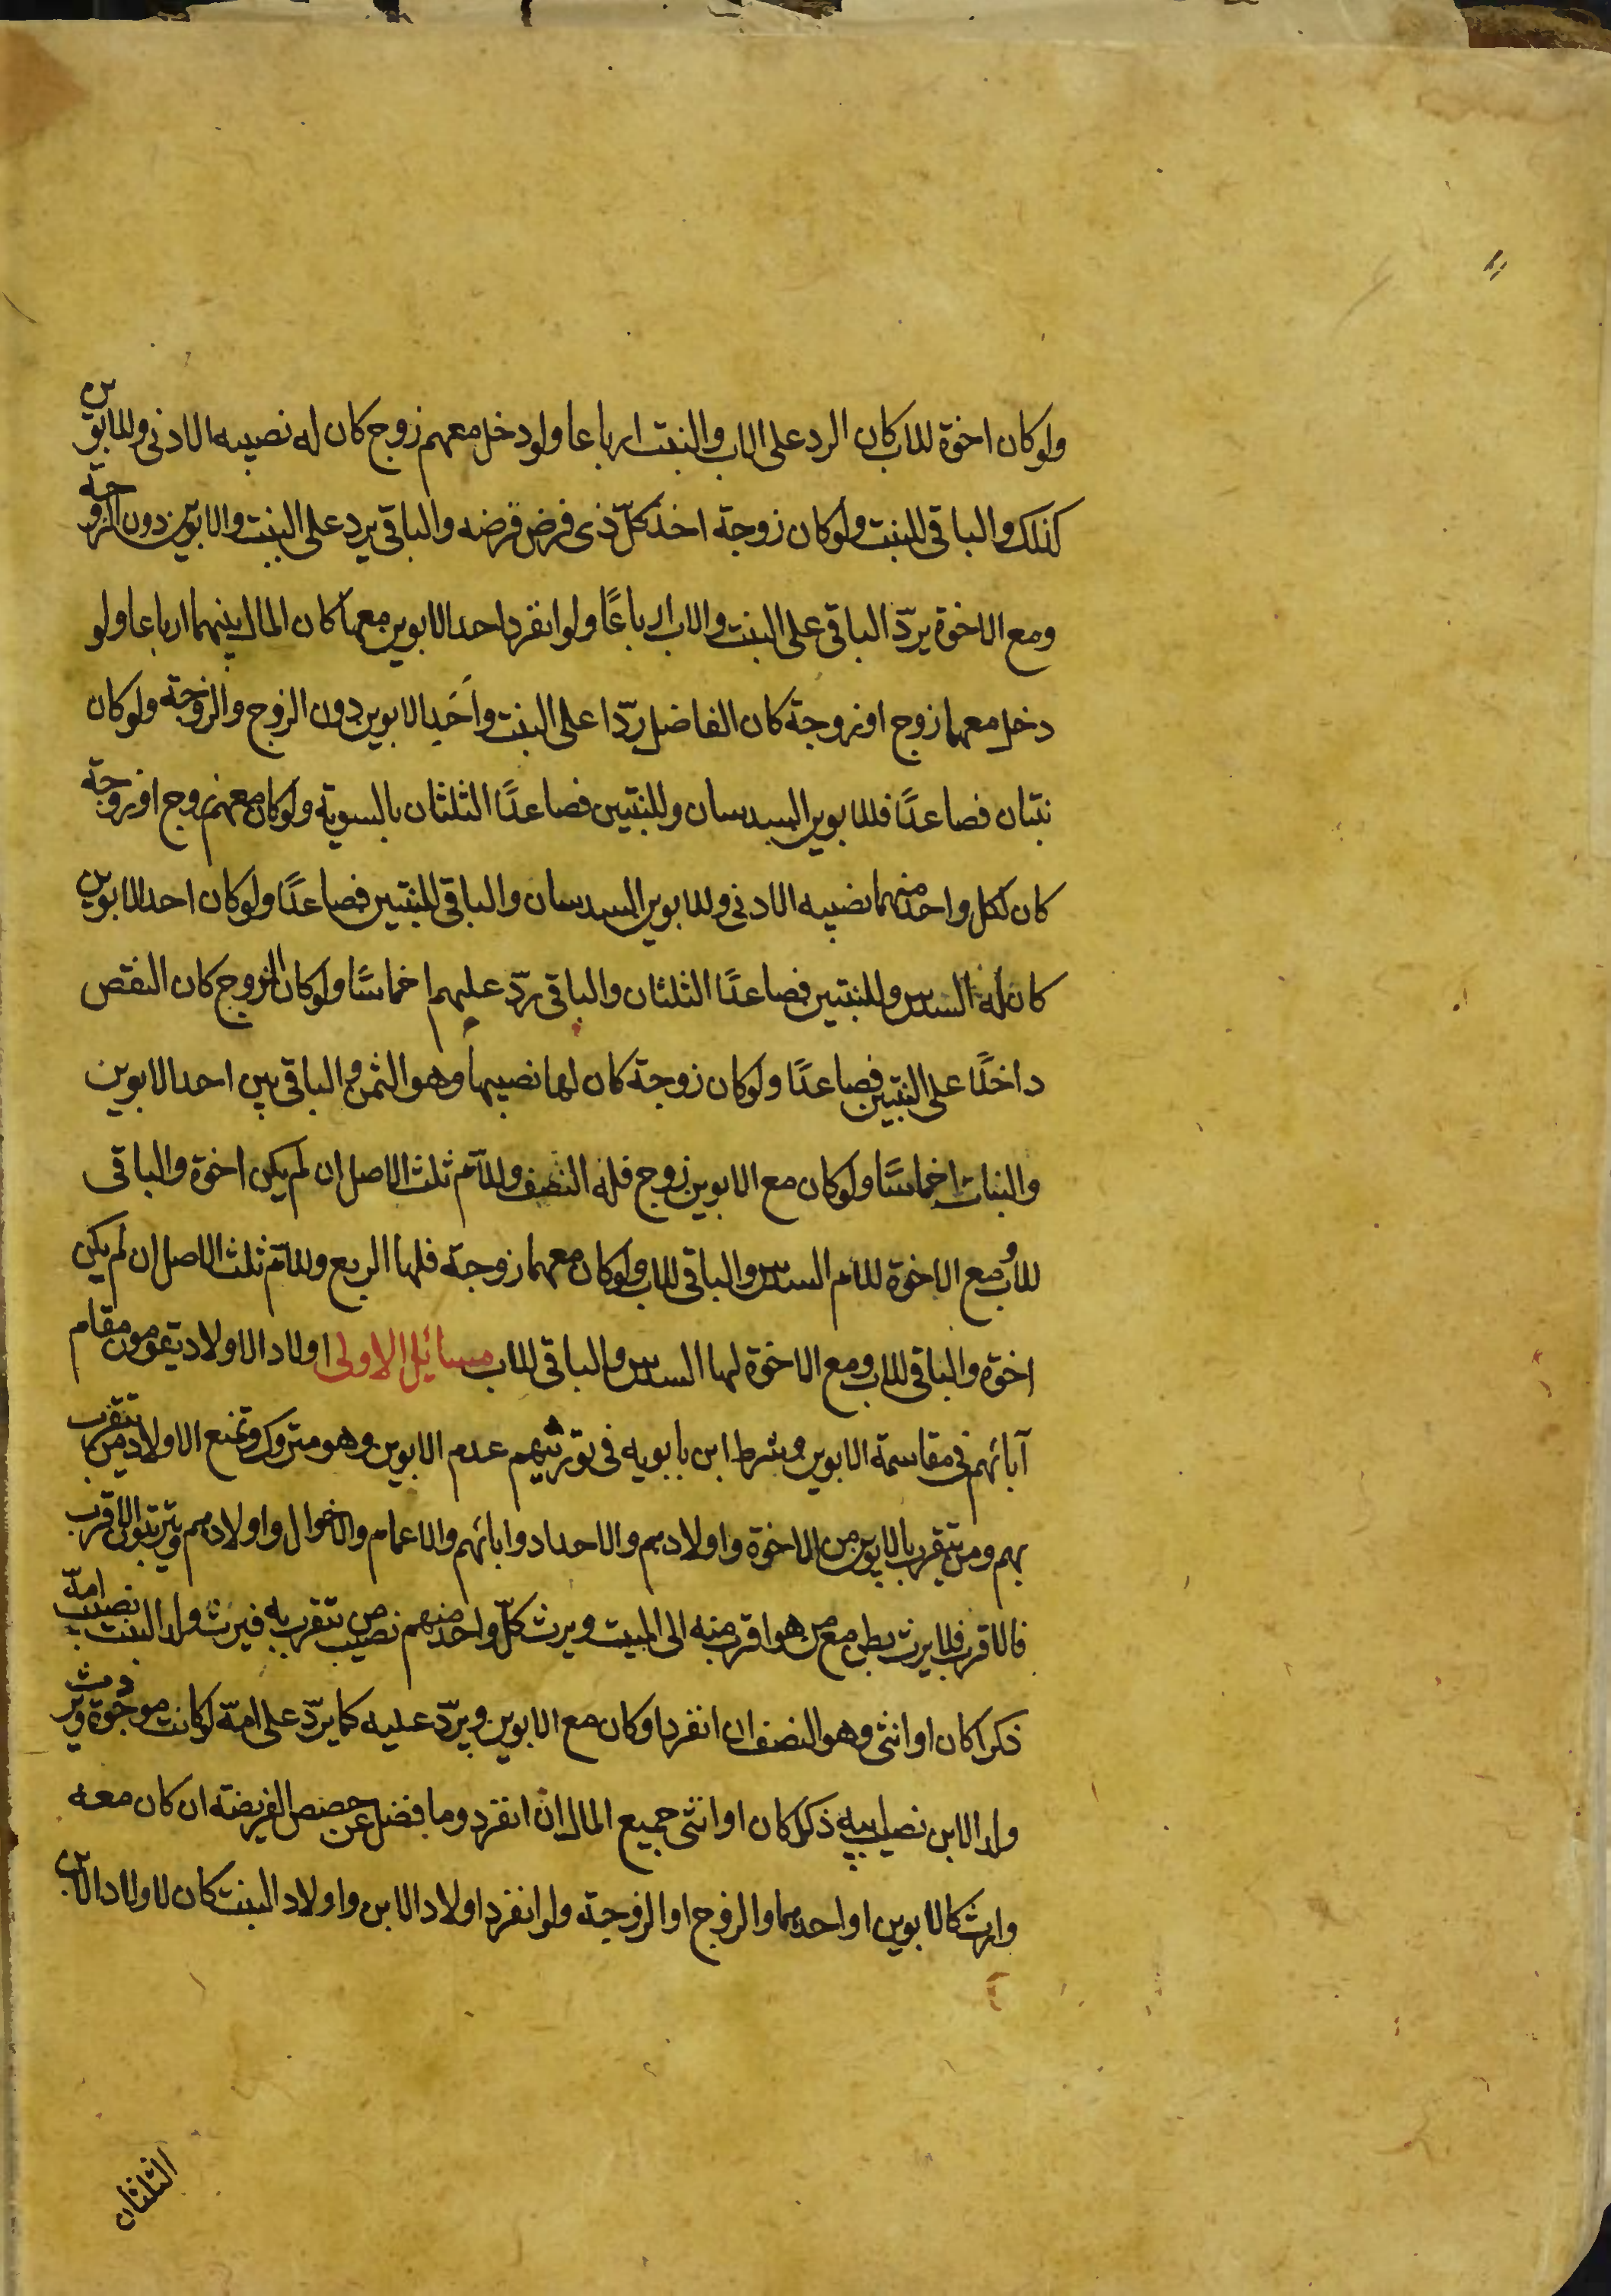 ولو كان اخوة للاب كان الرد على الاب والبنت ارباعا ولو دخل معهم زوج كان له نصيبه الادنى وللابوين
كذلك والباقى للبنت ولو كان زوجة اخذ كلّ ذى فرض فرضه والباقى يرد على البنت والابوين دون الزوجة
ومع الاخوة يردّ الباقى على البنت والاب ارباعًا ولو انفرد احد الابوين معها كان المال بينهما ارباعا ولو
دخل معهما زوج او زوجة كان الفاضل ردّا على البنت واَحَد الابوين دون الزوج والزوجة ولو كان
بنتان فصاعدًا فللابوين السدسان وللبنتين فصاعدًا الثلثان بالسوية ولو كان معهم زوج او زوجة
كان لكل واحد منهما نصيبه الادنى وللابوين السدسان والباقى للبنتين فصاعدًا ولو كان احد الابوين
كان له السدس وللبنتين فصاعدًا الثلثان والباقى ردّ عليهم اخماسًا ولو كان الزوج كان النقص
داخلًا على البنتين فصاعدًا ولو كان زوجة كان لها نصيبها وهو الثمن والباقى بين احد الابوين
والبنات اخماسًا ولو كان مع الابوين زوج فله النصف وللامّ ثلث الاصل ان لم يكن اخوة والباقى
للاب ومع الاخوة للام السدس والباقى للاب ولو كان معهما زوجة فلها الربع وللامّ ثلث الاصل ان لم يكن
اخوة والباقى للاب ومع الاخوة لها السدس والباقى للاب مسائل الاولى اولاد الاولاد يقومون مقام
آبائهم فى مقاسمة الابوين وشرط ابن بابويه فى توريثهم عدم الابوين وهو متروك ويمنع الاولاد من يتقرب
بهم ومن يتقرب بالابوين من الاخوة واولادهم والاجداد وابائهم والاعمام والاخوال واولادهم ويترتبون الاقرب
فالاقرب فلا يرث بطن مع من هو اقرب منه الى الميت ويرث كلّ واحد منهم نصيب من يتقرب به فيرث ولد البنت نصيب امّه
ذكرا كان او انثى وهو النصف ان انفرد او كان مع الابوين ويردّ عليه كما يردّ على امّه لو كانت موجودة ويرث
ولد الابن نصيب ابيه ذكرا كان او انثى جميع المال ان انفرد وما فضل عن حصص الفريضة ان كان معه
وارث كالابوين او احدهما والزوج او الزوجة ولو انفرد اولاد الابن واولاد البنت كان لاولاد الابن
الثلثان